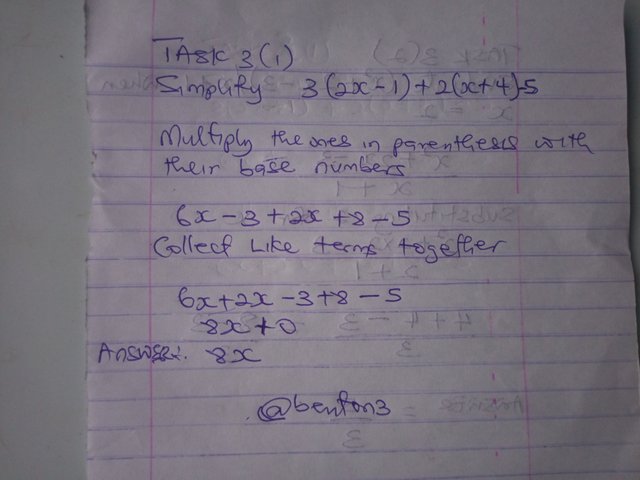 TASK 3(1)
Simplify 3(2x-1)+2(x+4)-5
Multiply the ones in parenthesis with
their base numbers
6x-3+2x+8-5
Collect Like terms together
6x+2x-3+8-5
8x+0
Answer:. 8x
@benton3